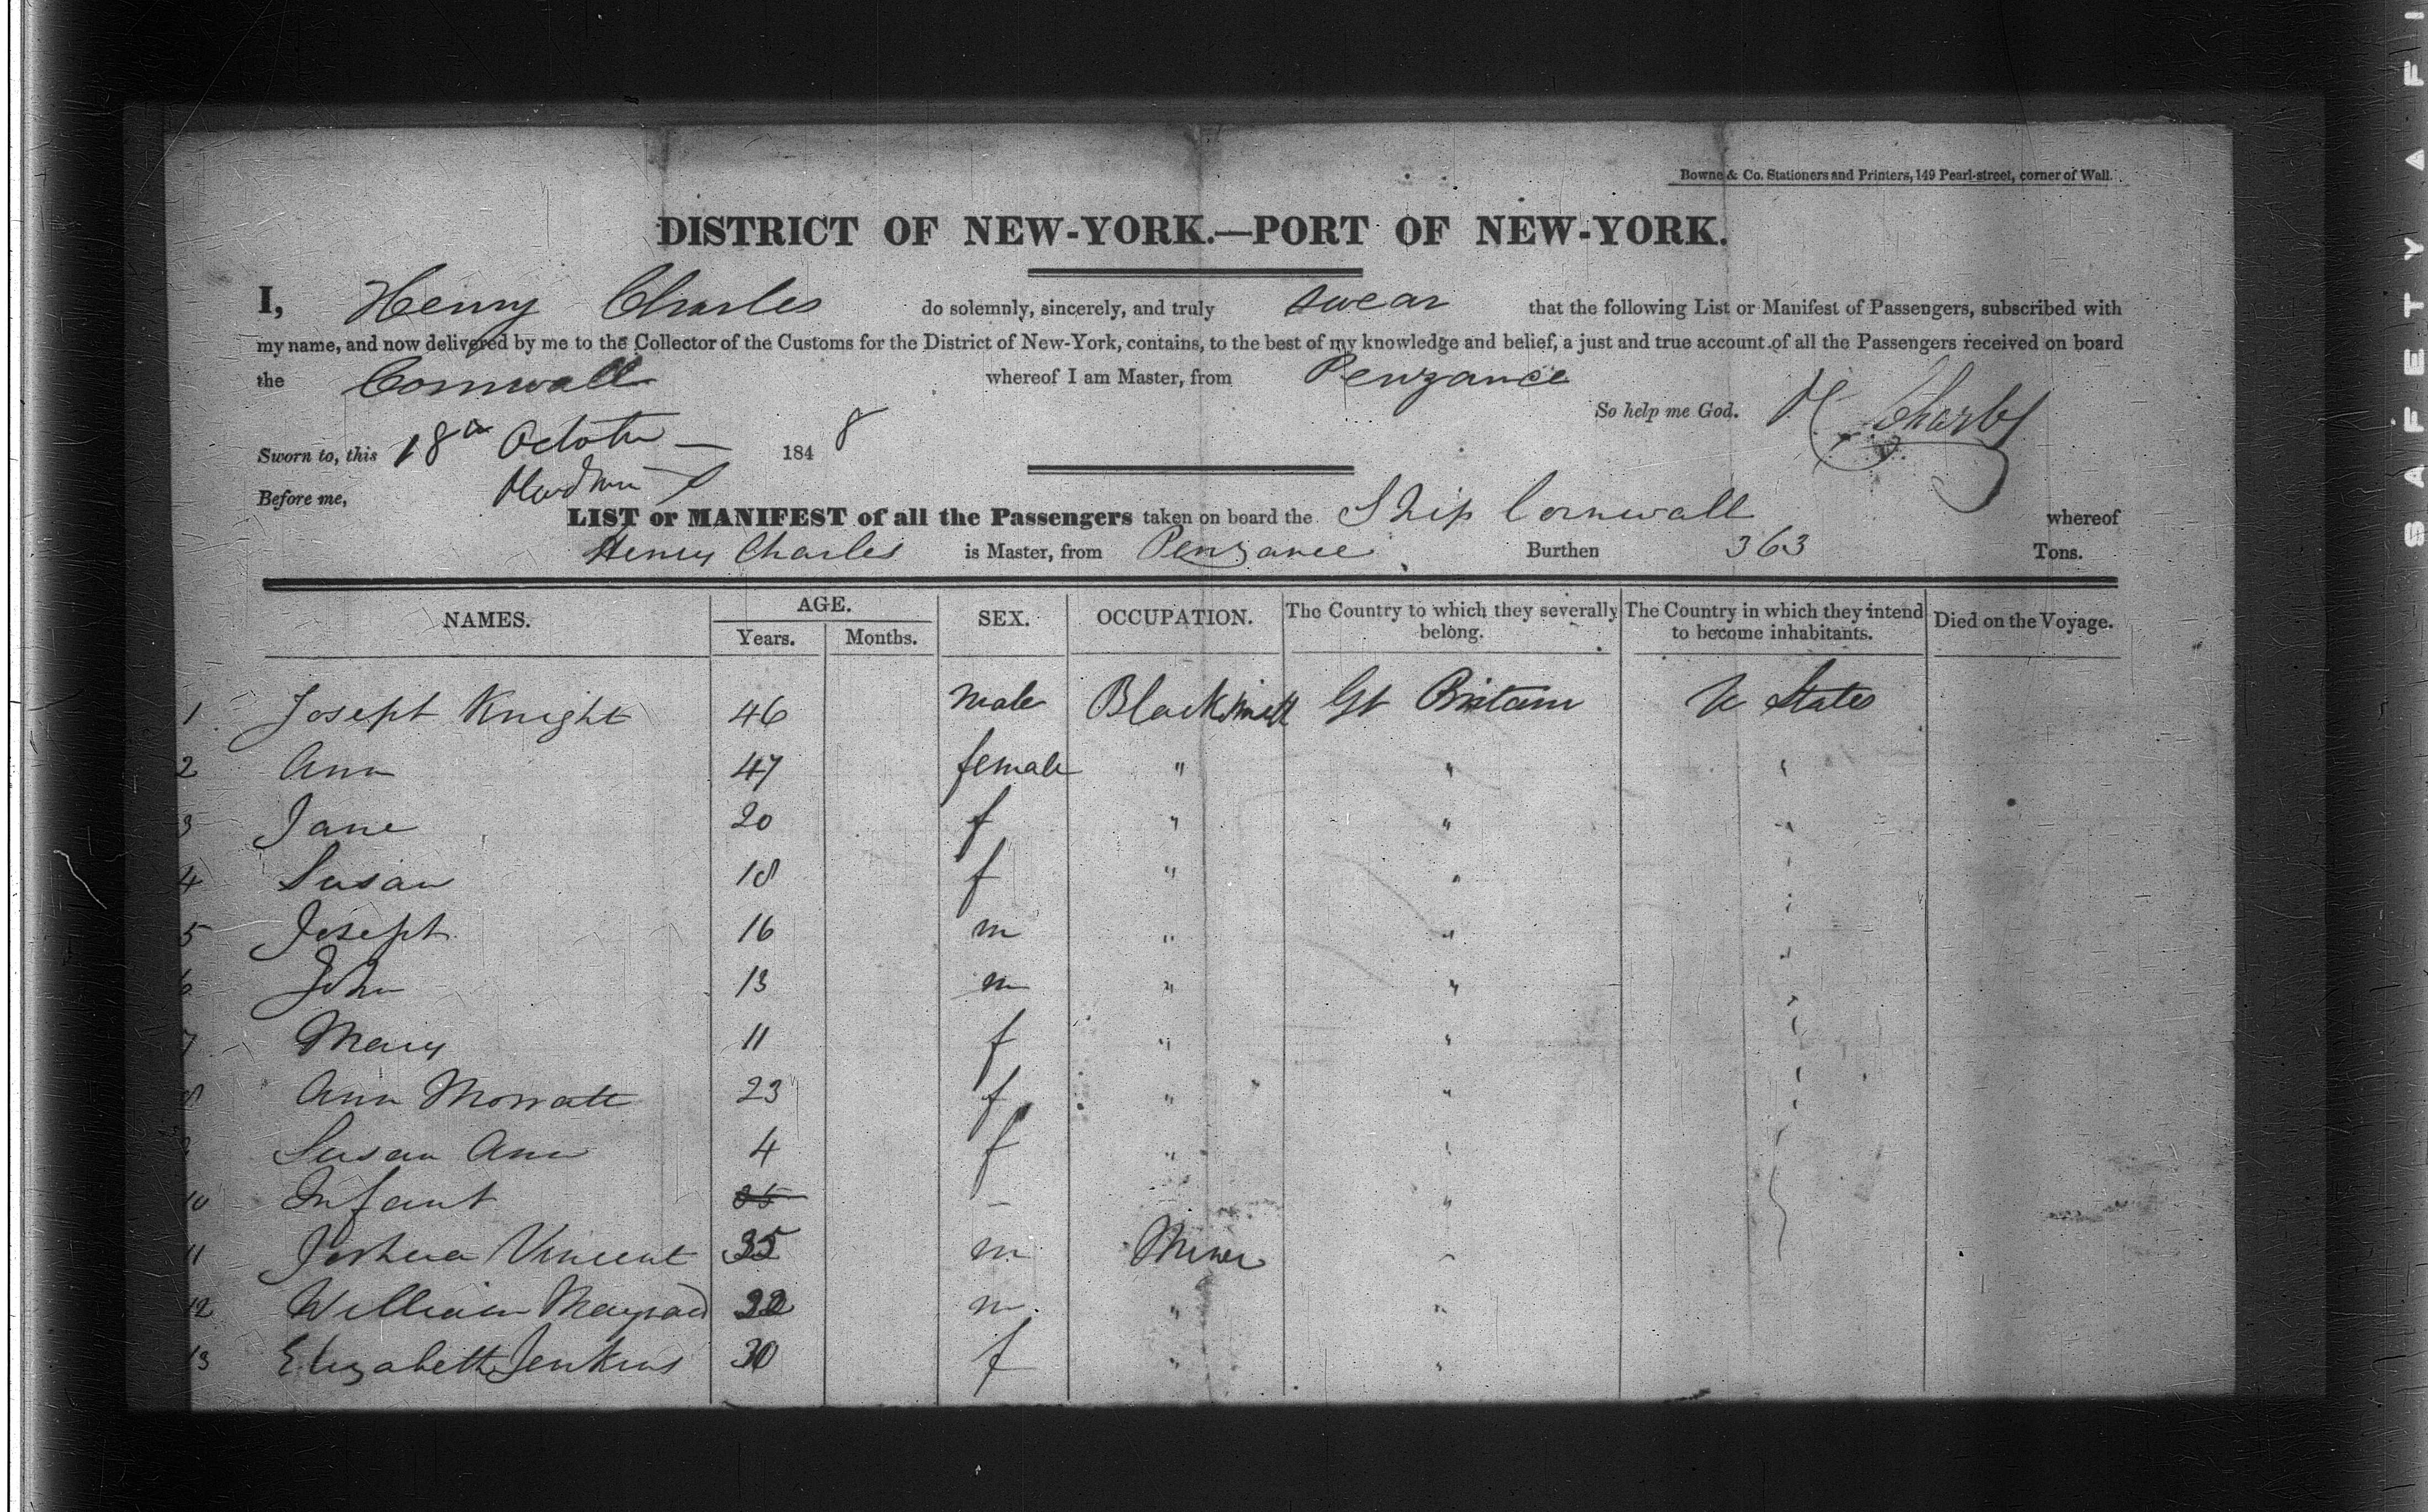 Bowne & Co. Stationers and Printers, 149 Pearl-street, corner of Wall.
DISTRICT OF NEW-YORK.—PORT OF NEW-YORK.
I, Henry Charles do solemnly, sincerely, and truly swear that the following List or Manifest of Passengers, subscribed with
my name, and now delivered by me to the Collector of the Customs for the District of New-York, contains, to the best of my knowledge and belief, a just and true account of all the Passengers received on board
the Cornwall whereof I am Master, from Penzance
So help me God. H Charles
Sworn to, this 18th October 1848
Before me,
LIST or MANIFEST of all the Passengers taken on board the Ship Cornwall whereof
Henry Charles is Master, from Penzance Burthen 363 Tons.
NAMES. AGE. Years. Months. SEX. OCCUPATION. The Country to which they severally belong. The Country in which they intend to become inhabitants. Died on the Voyage.
1 Joseph Knight 46 male Blacksmith Gt Britain U States
2 Ann 47 female " " "
3 Jane 20 f " " "
4 Susan 18 f " " "
5 Joseph 16 m " " "
6 John 13 m " " "
7 Mary 11 f " " "
8 Ann 23 f " " "
9 Susan Ann 4 f " " "
10 Infant - "
11 Joshua Vincent 35 m Miner "
12 William 22 m " "
13 Elizabeth Jenkins 30 f " "
SAFETY FI